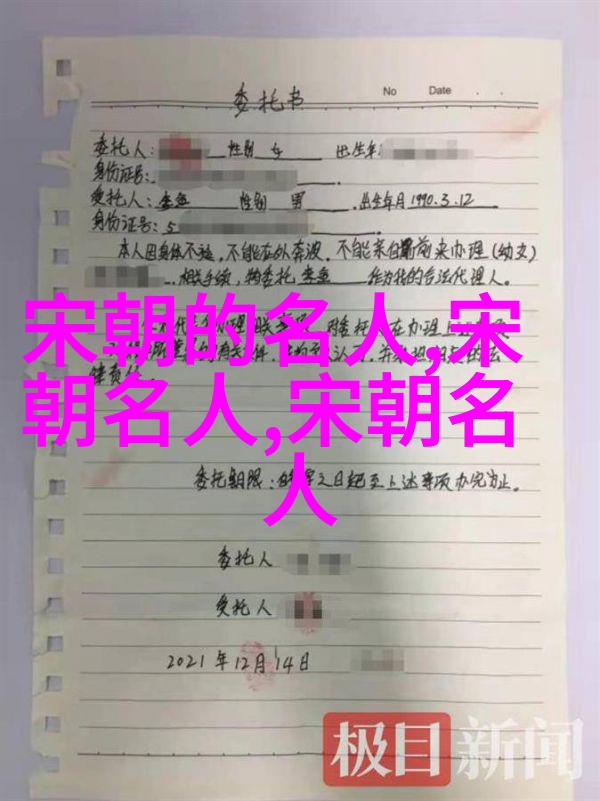 No Date
委托书
委托人: 性别 女 出生年
身份证号:
受托人:李垒 性别 男 .出生年月1990.3.12
身份证号:5
本人因身体不适,不能在外奔波,不能亲自前来办理(幼女)
相关手续,特委托 李垒 作为我的合法代理人。
宋朝的名人,宋
朝名人,宋朝名
人
律责任。
委托期限:自签字之日起至上述事项办完为止。
委托人
受托人
2021年12月14日
极目新闻